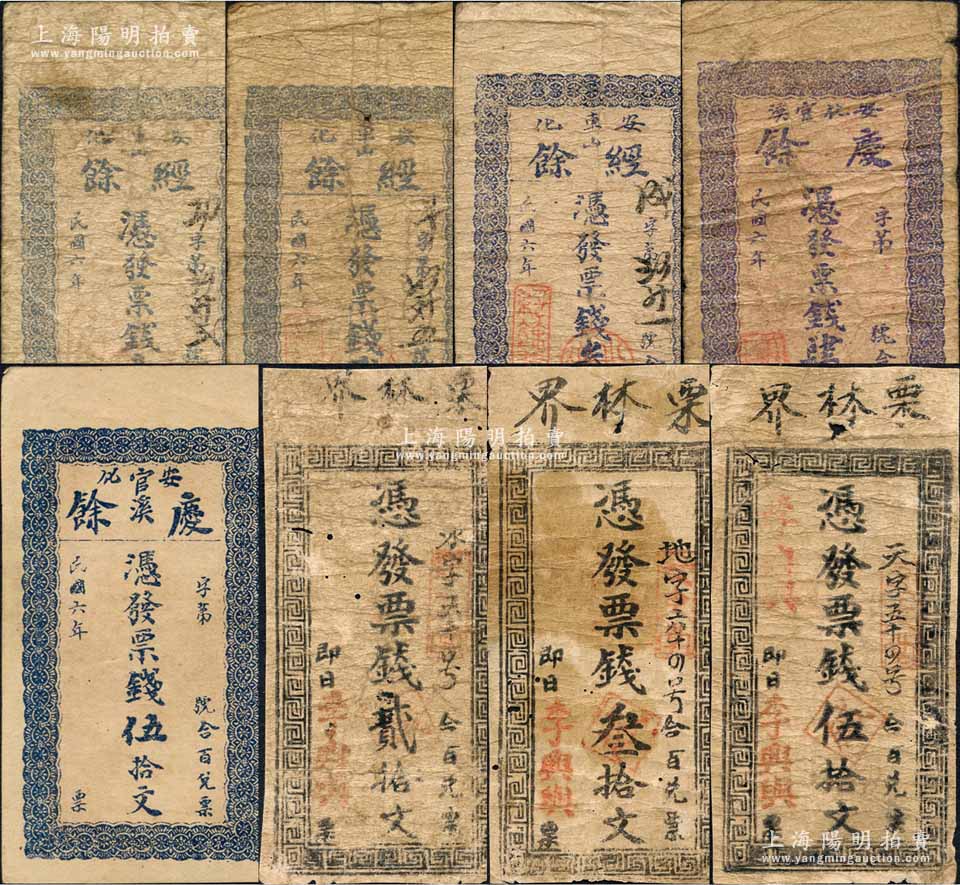 上海陽明拍賣
www.yangmingauction.com
安東山化
經餘
憑發票錢
民國六年
字第
安東山化
經餘
憑發票錢
民國六年
上海陽明拍賣
www.yangmingauction.com
安東山化
經餘
憑發票錢叁
國六年
字第
號合
安化官溪
慶餘
字第
號合
憑發票錢肆
民國六年
安化官溪
慶餘
字第
號合百兌票
憑發票錢伍拾文
民國六年
票
栗林界
憑發票錢貳拾文
即日
票
上海陽明拍賣
www.yangmingauction.com
栗林界
地字
号合百兌票
憑發票錢叁拾文
即日
李興興
票
栗林界
天字五十四号
憑發票錢伍拾文
即日
李興興
票
上海陽明拍賣
www.yangmingauction.com